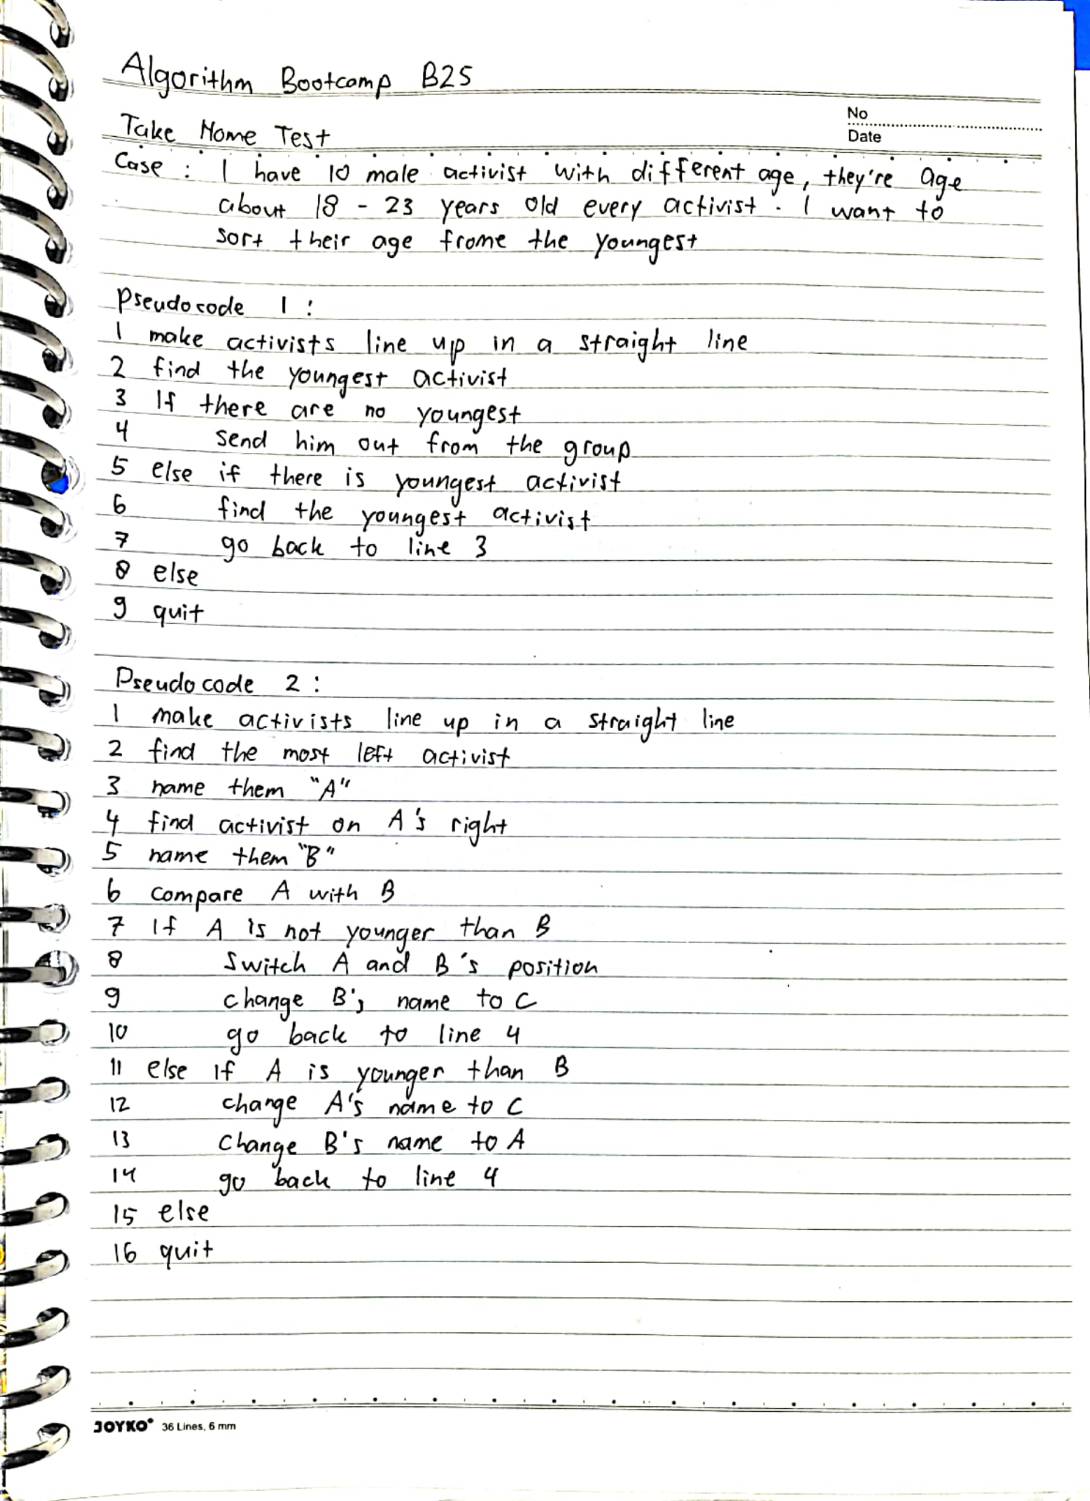 Algorithm Bootcamp B25
No
Take Home Test
Date
Case : I have 10 male activist with different age, they're age
about 18 - 23 years old every activist. I want to
sort their age frome the youngest
Pseudocode 1 :
1 make activists line up in a straight line
2 find the youngest activist
3 If there are no youngest
4 send him out from the group
5 else if there is youngest activist
6 find the youngest activist
7 go back to line 3
8 else
9 quit
Pseudocode 2 :
1 make activists line up in a straight line
2 find the most left activist
3 name them "A"
4 find activist on A's right
5 name them "B"
6 compare A with B
7 If A is not younger than B
8 Switch A and B's position
9 change B's name to C
10 go back to line 4
11 else If A is younger than B
12 change A's name to C
13 change B's name to A
14 go back to line 4
15 else
16 quit
JOYKO 36 Lines, 6 mm